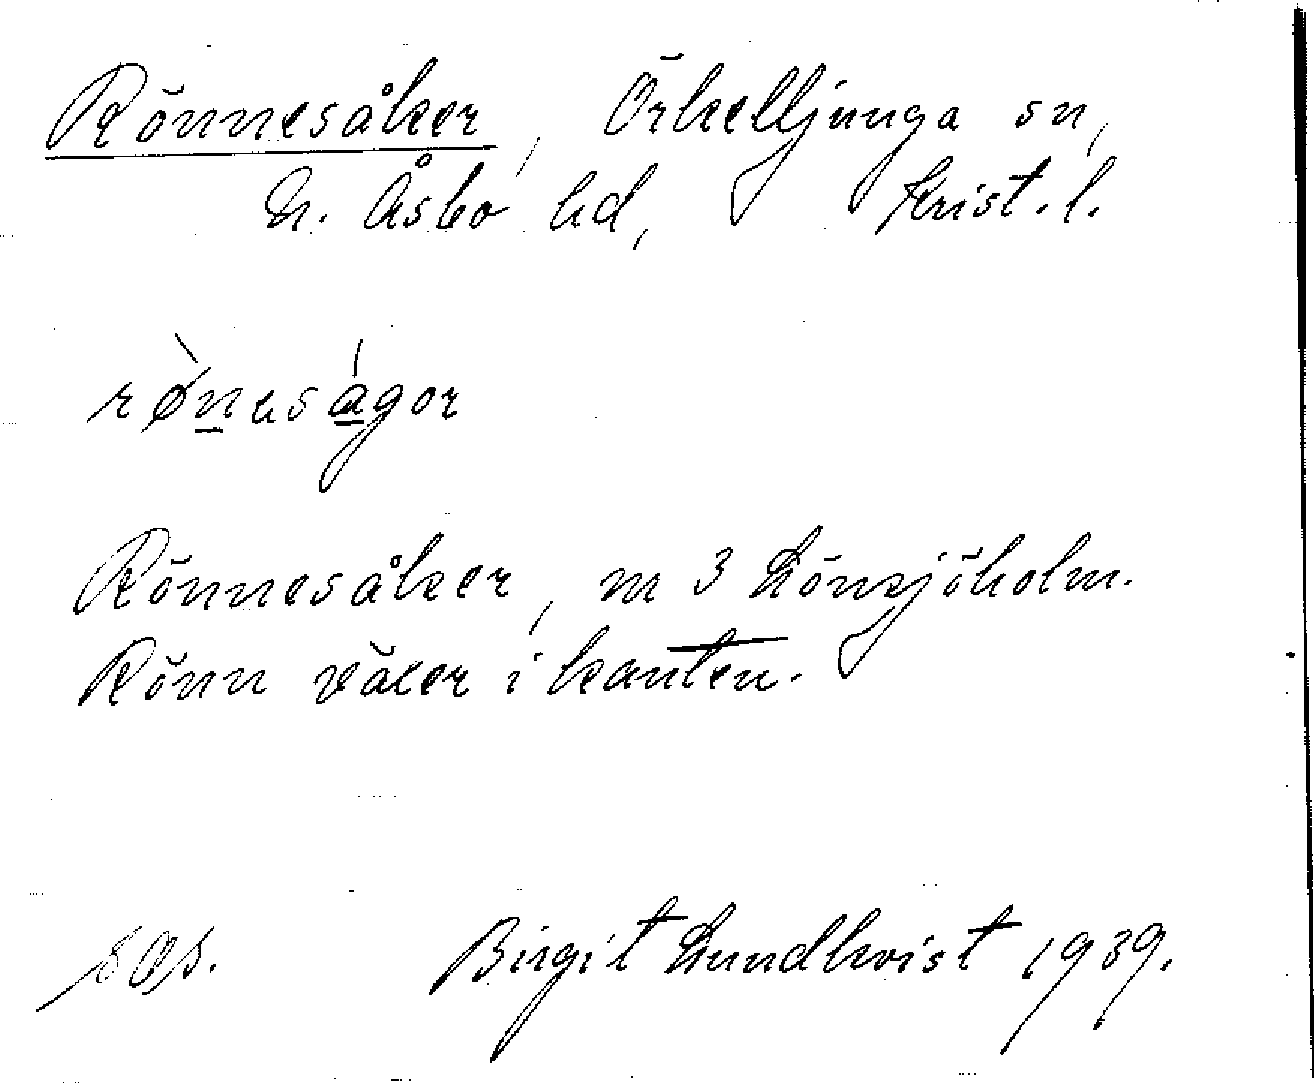 Rönnesåker, Örkelljunga sn,
N. Åsbo hd, Krist. l.
rø̀neságor
Rönnesåker, m 3 Lönsjöholm.
Rönn växer i kanten.
Birgit Lundkvist 1939.